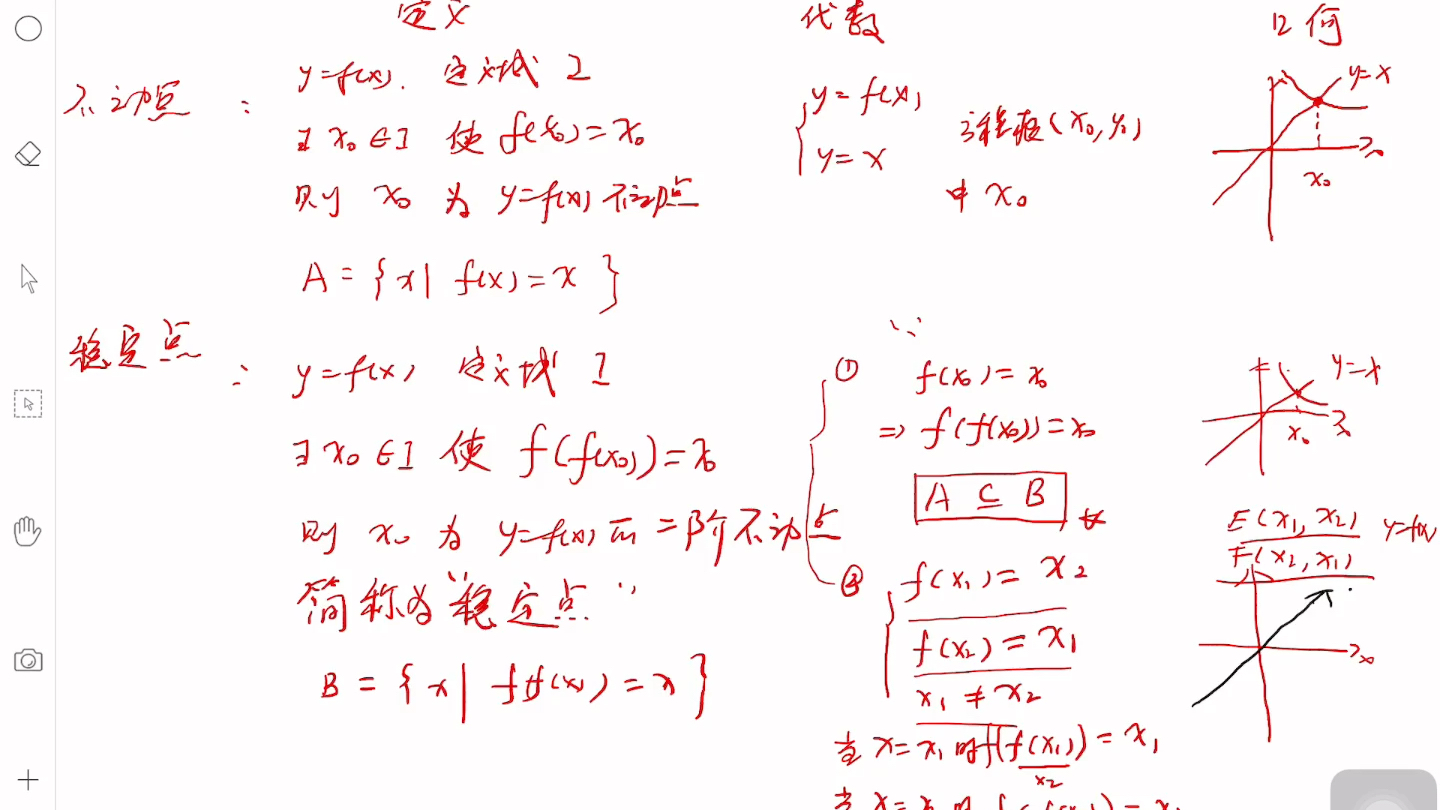 定义 代数 几何
不动点: y=f(x), 定义域 I
∃ x₀∈I 使 f(x₀)=x₀
则 x₀ 为 y=f(x) 不动点
A={x| f(x)=x}
{ y=f(x)
y=x
方程組(x₀,y₀)
中 x₀
y=x
x
x₀
稳定点: y=f(x) 定义域 I
∃ x₀∈I 使 f(f(x₀))=x₀
则 x₀ 为 y=f(x) 而 二阶不动点
简称为"稳定点"
B={x| ff(x)=x}
① f(x₀)=x₀
⇒ f(f(x₀))=x₀
A ⊆ B
② { f(x₁)=x₂
f(x₂)=x₁
x₁≠x₂
当 x=x₁ 时 f(f(x₁))=x₁
x₂
y=x
x
x₀
E(x₁,x₂) y=f(x)
F(x₂,x₁)
x